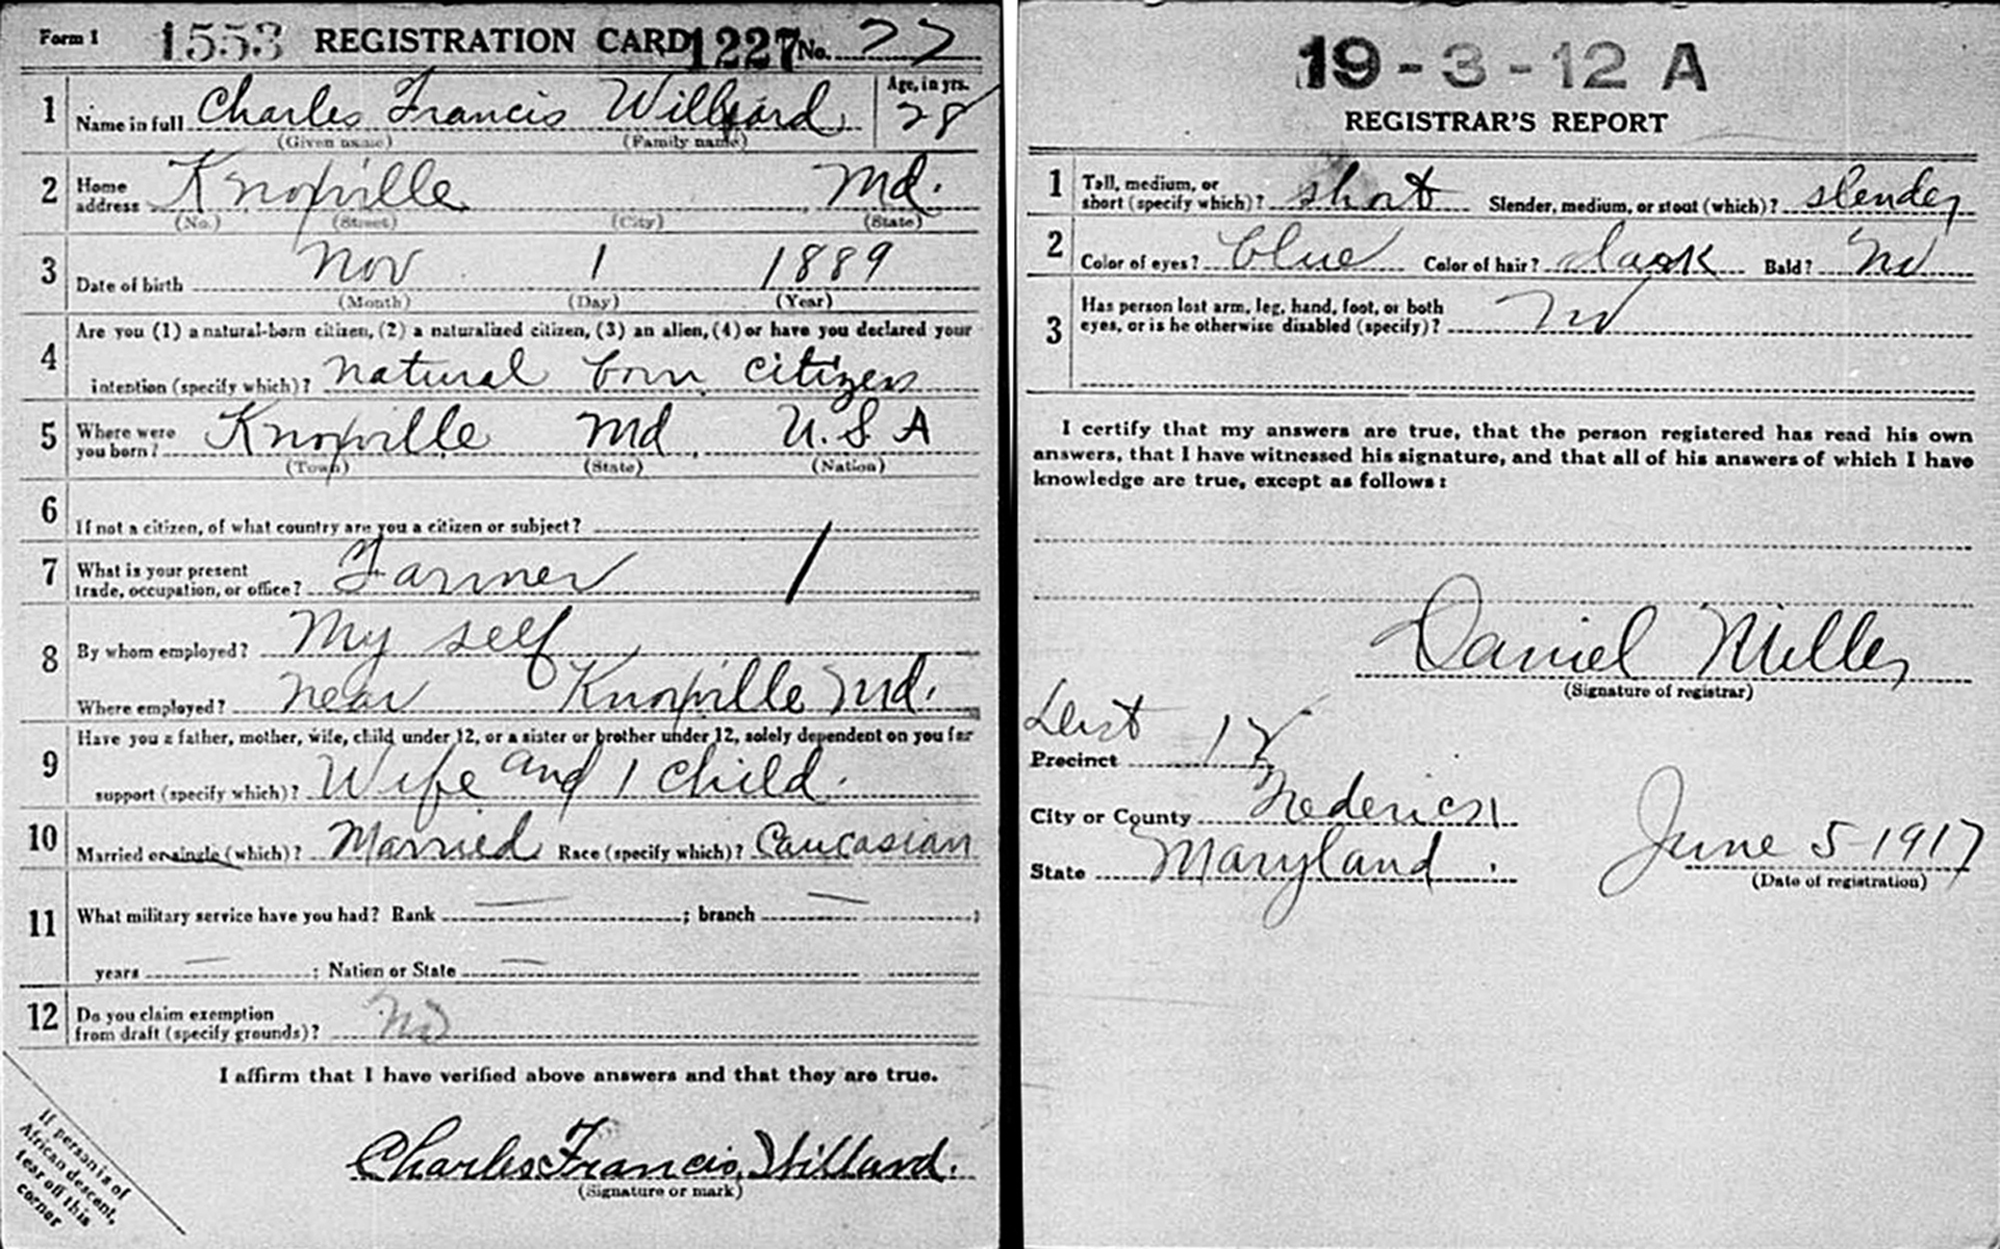 Form 1 1553 REGISTRATION CARD 1227 No. 22
1 Name in full Charles Francis Willard Age, in yrs. 28
(Given name) (Family name)
2 Home address Knoxville Md.
(No.) (Street) (City) (State)
3 Date of birth Nov 1 1889
(Month) (Day) (Year)
4 Are you (1) a natural-born citizen, (2) a naturalized citizen, (3) an alien, (4) or have you declared your
intention (specify which)? natural born citizen
5 Where were you born? Knoxville Md U.S.A
(Town) (State) (Nation)
6 If not a citizen, of what country are you a citizen or subject?
7 What is your present
trade, occupation, or office? Farmer
8 By whom employed? My self
Where employed? near Knoxville Md.
9 Have you a father, mother, wife, child under 12, or a sister or brother under 12, solely dependent on you for
support (specify which)? Wife and 1 child.
10 Married or single (which)? Married Race (specify which)? Caucasian
11 What military service have you had? Rank — ; branch — ;
years — ; Nation or State —
12 Do you claim exemption
from draft (specify grounds)? No
I affirm that I have verified above answers and that they are true.
Charles Francis Willard.
(Signature or mark)
If person is of
African descent,
tear off this
corner
19-3-12 A
REGISTRAR'S REPORT
1 Tall, medium, or
short (specify which)? short Slender, medium, or stout (which)? slender
2 Color of eyes? blue Color of hair? dark Bald? No
3 Has person lost arm, leg, hand, foot, or both
eyes, or is he otherwise disabled (specify)? No
I certify that my answers are true, that the person registered has read his own
answers, that I have witnessed his signature, and that all of his answers of which I have
knowledge are true, except as follows:
Daniel Miller
(Signature of registrar)
Dist
Precinct 12
City or County Frederick
State Maryland June 5-1917
(Date of registration)